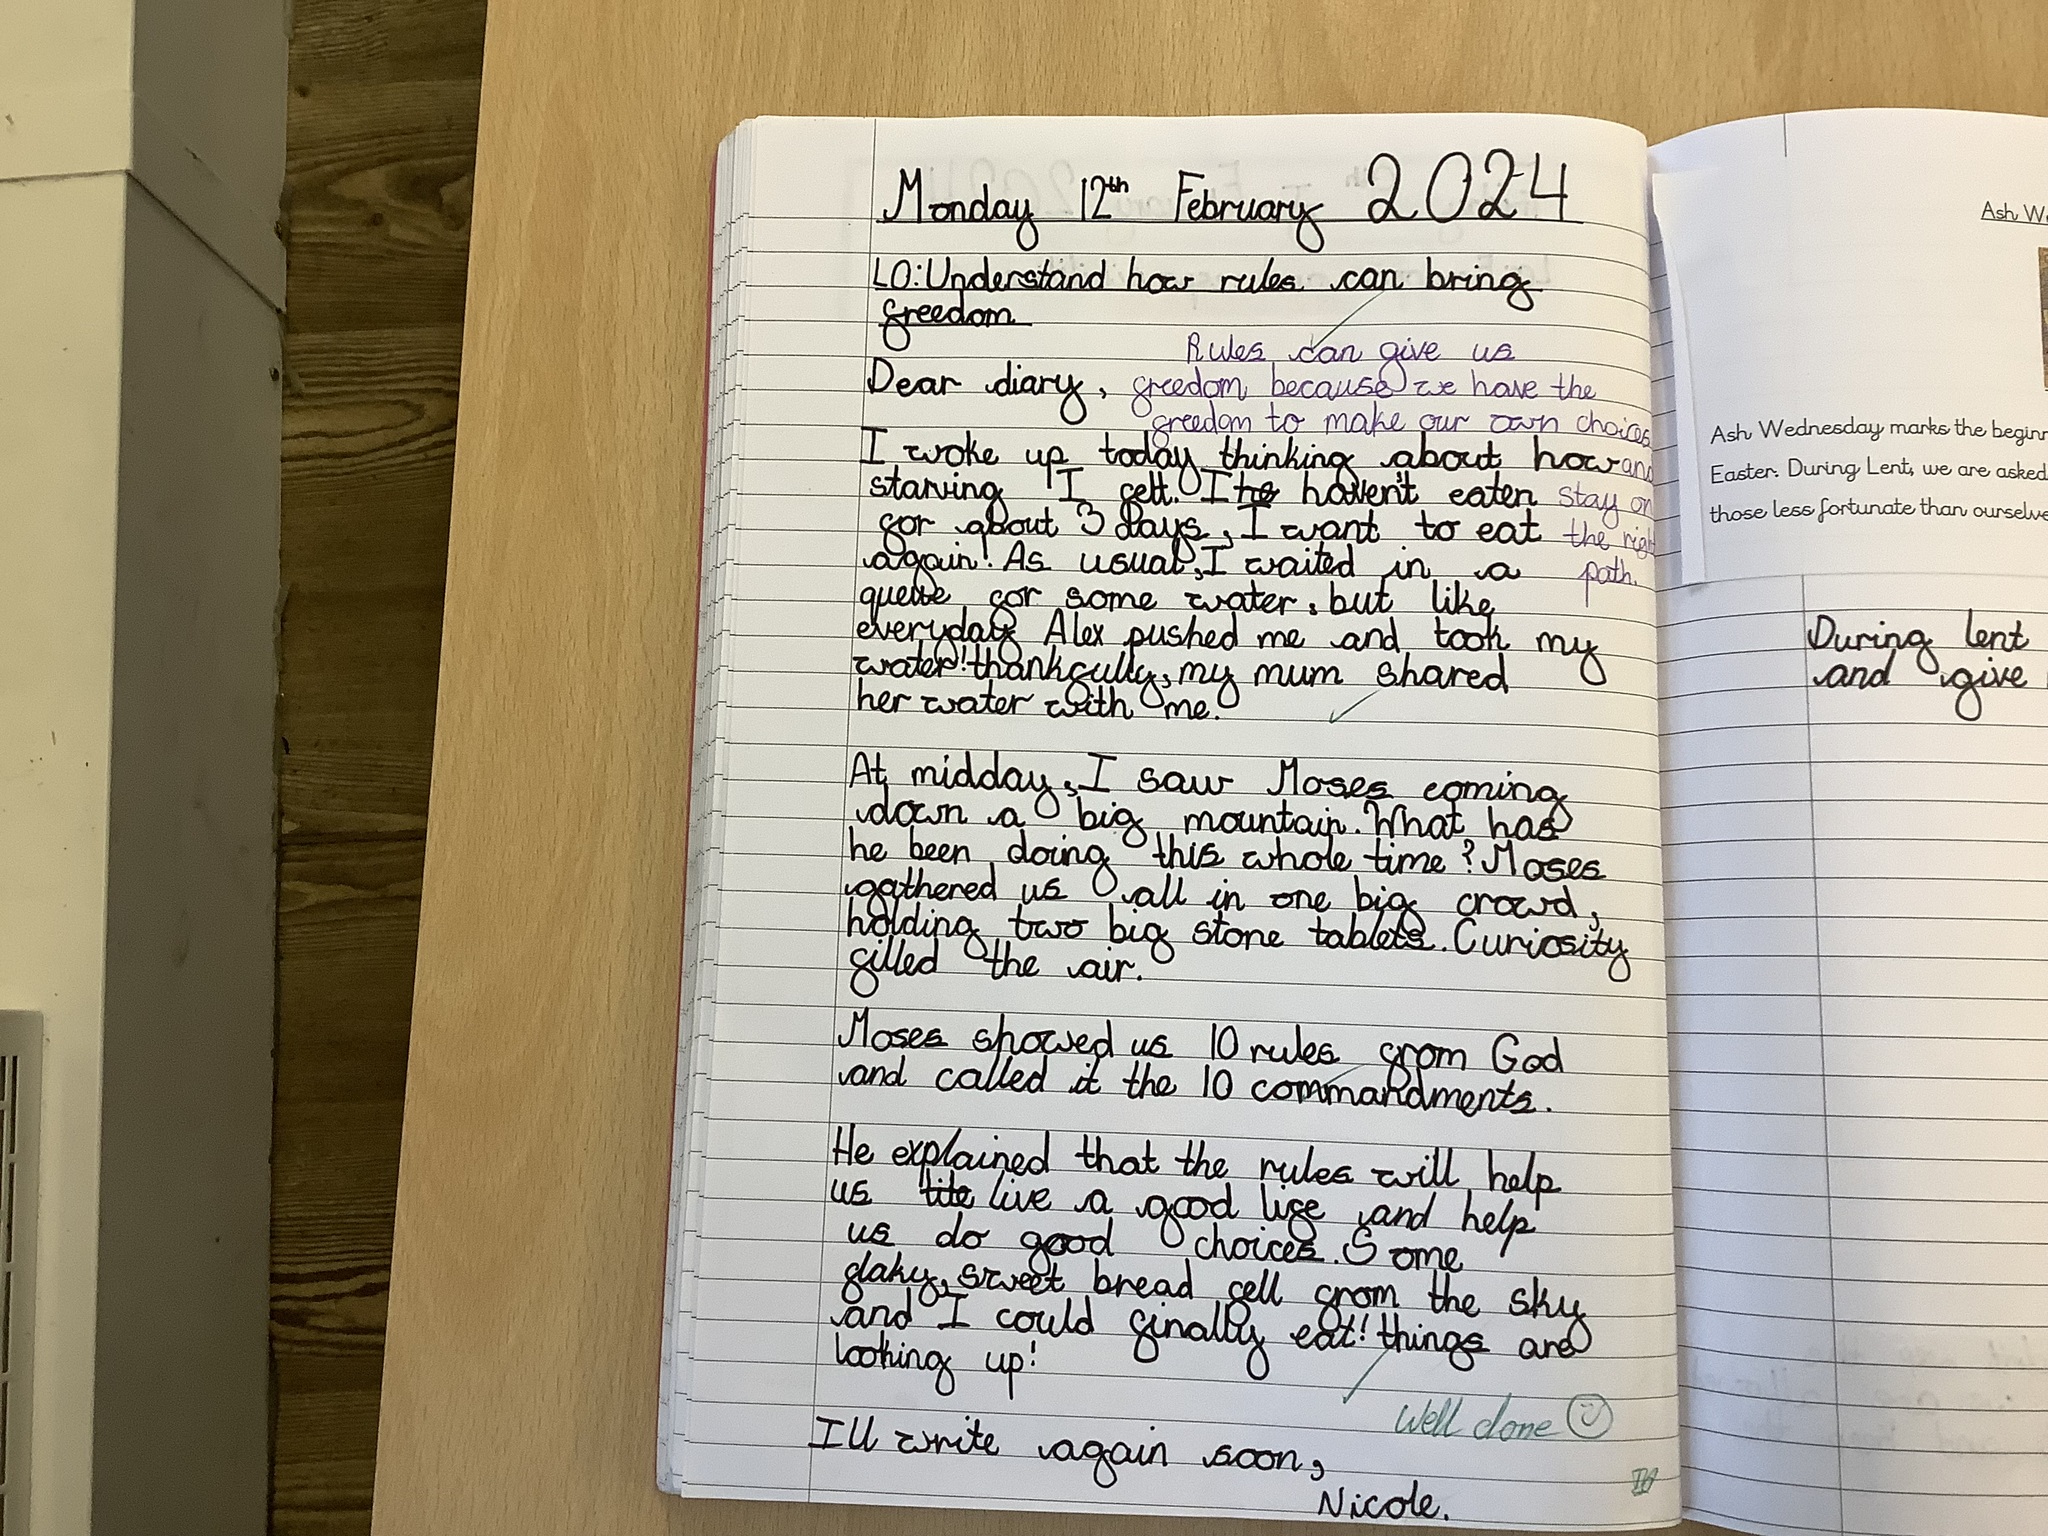 Monday 12th February 2024
LO: Understand how rules can bring
freedom
Rules can give us
freedom because we have the
freedom to make our own choices
and
stay on
the right
path.
Dear diary,
I woke up today thinking about how
starving I felt. I haven't eaten
for about 3 days, I want to eat
again! As usual, I waited in a
queue for some water, but like
everyday Alex pushed me and took my
water! thankfully, my mum shared
her water with me.
At midday, I saw Moses coming
down a big mountain. What has
he been doing this whole time? Moses
gathered us all in one big crowd,
holding two big stone tablets. Curiosity
filled the air.
Moses showed us 10 rules from God
and called it the 10 commandments.
He explained that the rules will help
us live a good life and help
us do good choices. Some
flaky, sweet bread fell from the sky
and I could finally eat! things are
looking up!
Well done
I'll write again soon,
Nicole.
Ash We
Ash Wednesday marks the beginn
Easter. During Lent, we are asked
those less fortunate than ourselve
During lent
and give